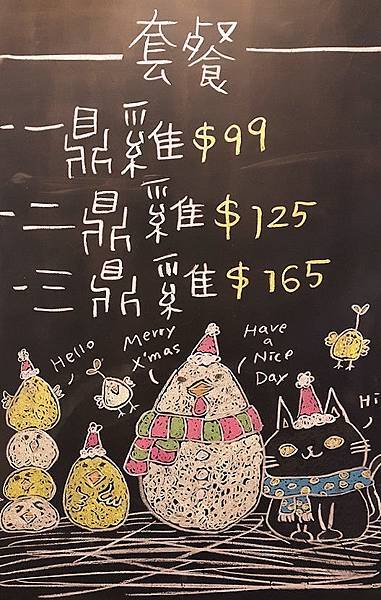 套餐
一鼎雞 $99
二鼎雞 $125
三鼎雞 $165
Hello
Merry
X'mas
Have
a
Nice
Day
Hi